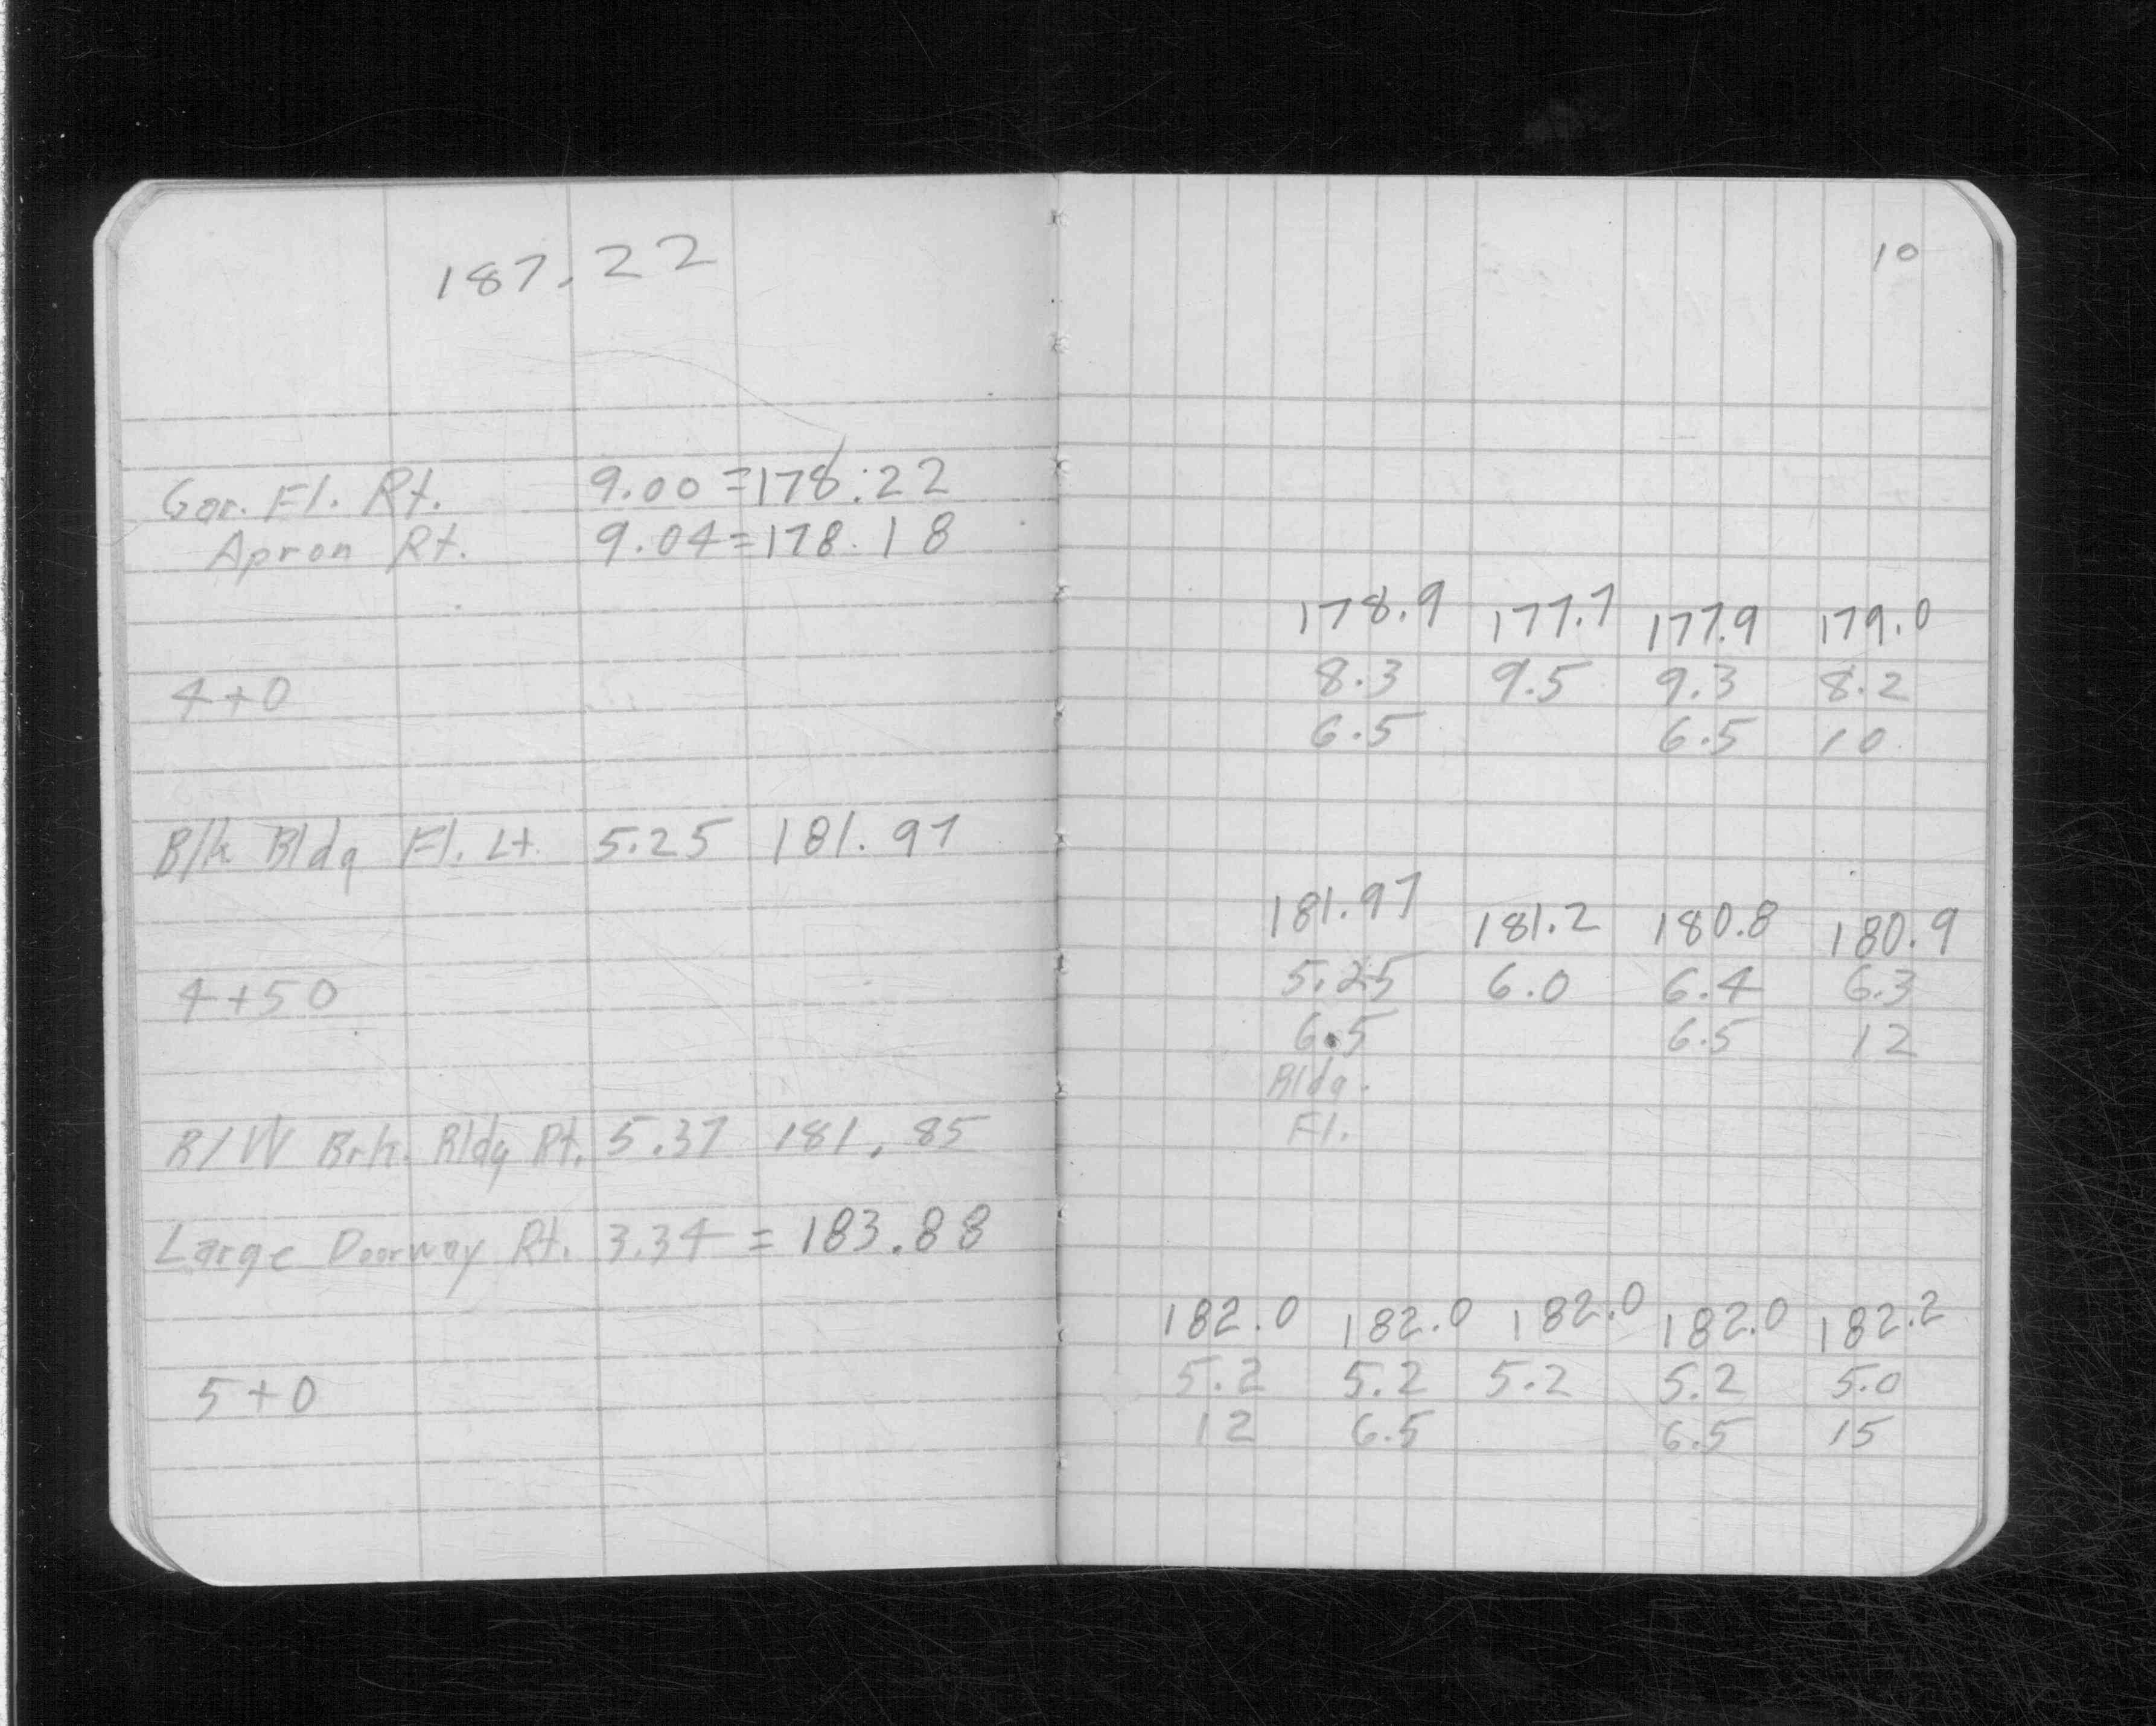 187.22
Gar. Fl. Rt. 9.00 = 178.22
Apron Rt. 9.04 = 178.18
4+0
Blk Bldg Fl. Lt. 5.25 181.97
4+50
R/W Brk. Bldg Rt. 5.37 181.85
Large Doorway Rt. 3.34 = 183.88
5+0
10
178.9 177.7 177.9 179.0
8.3 9.5 9.3 8.2
6.5 6.5 10
181.97 181.2 180.8 180.9
5.25 6.0 6.4 6.3
6.5 6.5 12
Bldg.
Fl.
182.0 182.0 182.0 182.0 182.2
5.2 5.2 5.2 5.2 5.0
12 6.5 6.5 15